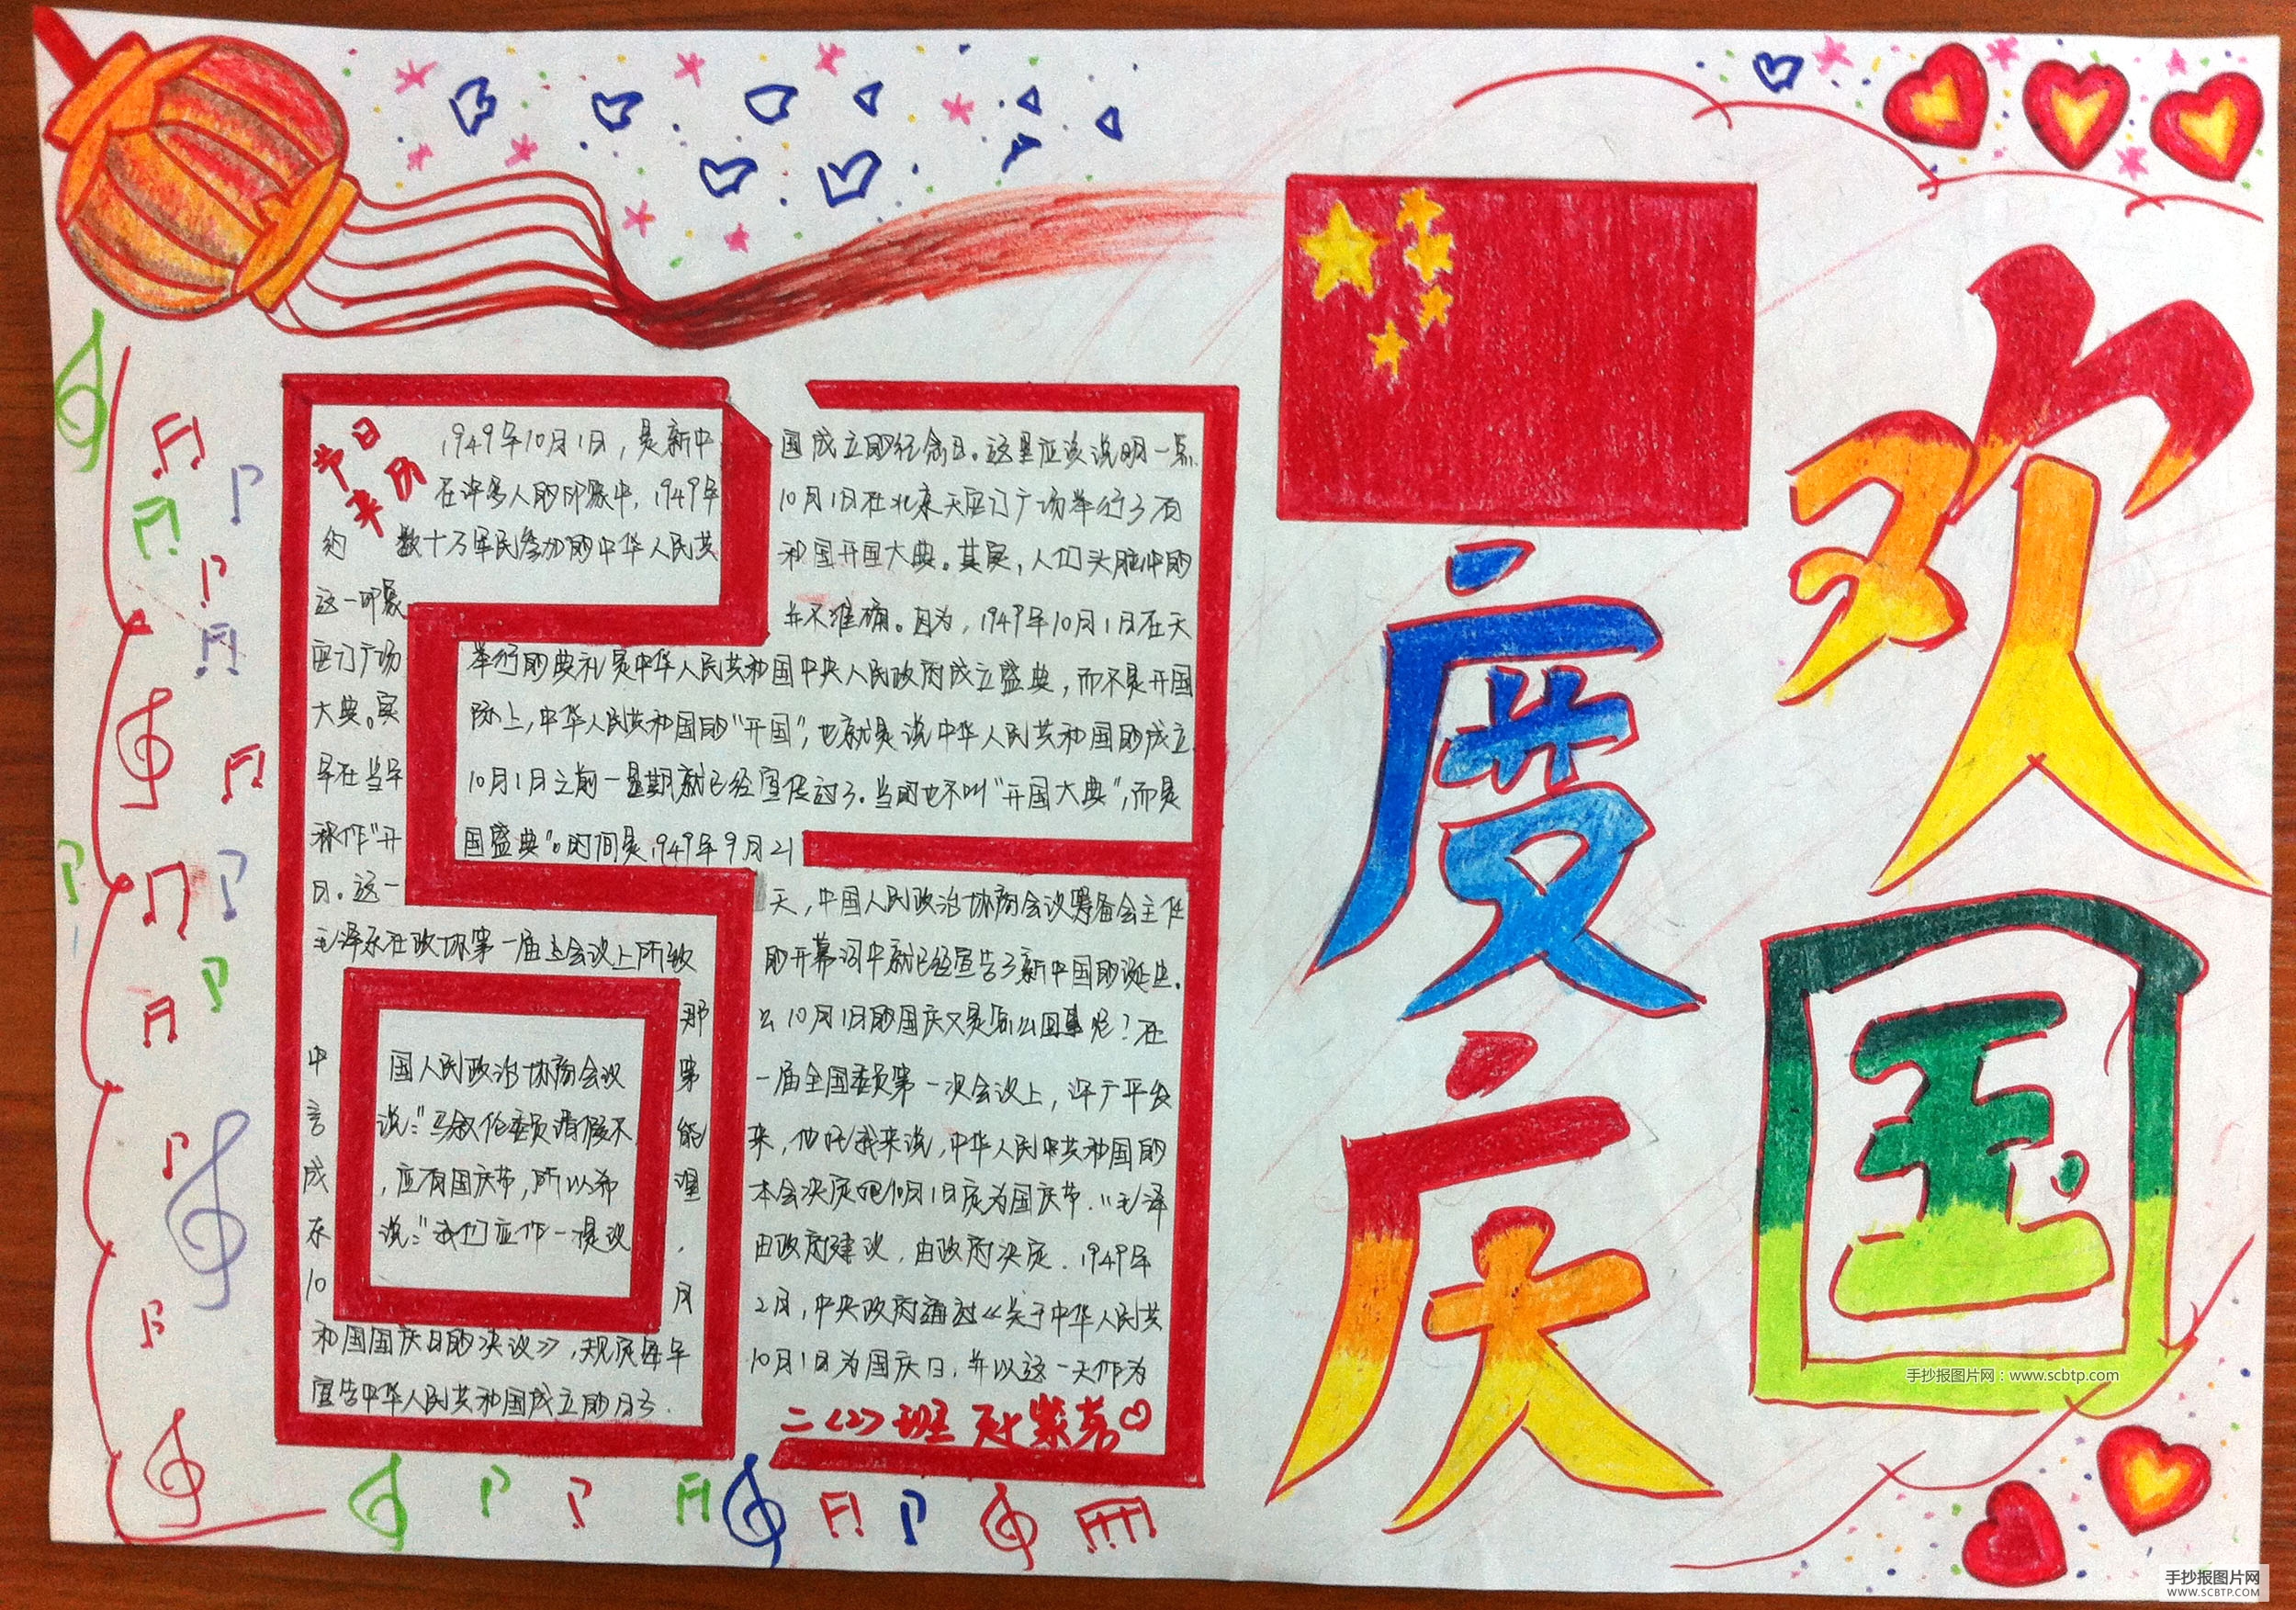 欢度国庆
节日来历
1949年10月1日，是新中国成立的纪念日。这里应该说明一点
在许多人的印象中，1949年10月1日在北京天安门广场举行了有
约数十万军民参加的中华人民共和国开国大典。其实，人们头脑中的
这一印象并不准确。因为，1949年10月1日在天
安门广场举行的典礼是中华人民共和国中央人民政府成立盛典，而不是开国
大典。实际上，中华人民共和国的“开国”，也就是说中华人民共和国的成立
早在当年10月1日之前一星期就已经宣传过了。当时也不叫“开国大典”，而是
称作“开国盛典”。时间是1949年9月21
日。这一天，中国人民政治协商会议筹备会主任
毛泽东在政协第一届上会议上所致的开幕词中就已经宣告了新中国的诞生。
那么10月1日的国庆又是怎么回事呢？在
中国人民政治协商会议第一届全国委员第一次会议上，许广平发
言说：“马叙伦委员请假不能来，他托我来说，中华人民共和国的
成，应有国庆节，所以希望本会决定吧10月1日定为国庆节.”毛泽
东说：“我们应作一提议，由政府建议，由政府决定.1949年
10月2日，中央政府通过《关于中华人民共
和国国庆日的决议》，规定每年10月1日为国庆日，并以这一天作为
宣告中华人民共和国成立的日子.
二〈2〉班
手抄报图片网：www.scbtp.com
手抄报图片网
WWW.SCBTP.COM